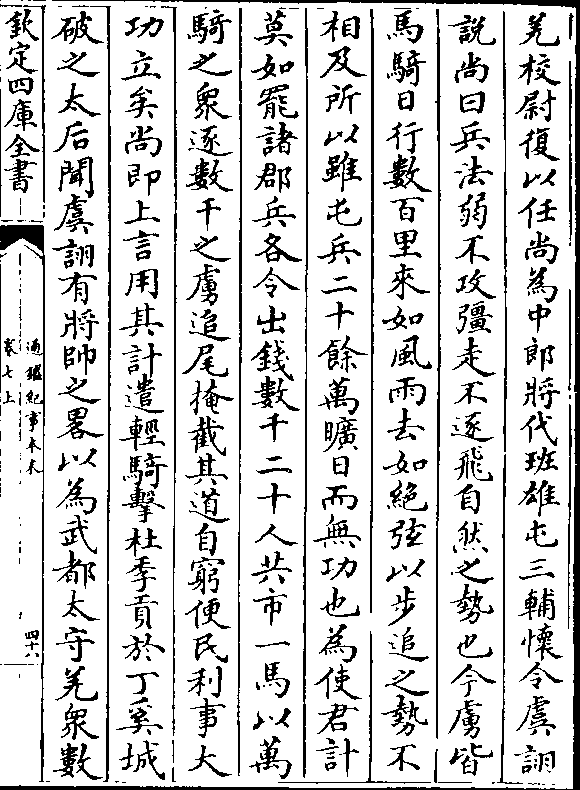 羌校尉復以任尚為中郎將代班雄屯三輔懷令虞詡
說尚曰兵法弱不攻彊走不逐飛自然之勢也今虜皆
馬騎日行數百里來如風雨去如絶弦以步追之勢不
相及所以雖屯兵二十餘萬曠日而無功也為使君計
莫如罷諸郡兵各令出錢數千二十人共市一馬以萬
騎之衆逐數千之虜追尾掩截其道自窮便民利事大
功立矣尚即上言用其計遣輕騎擊杜季貢於丁奚城
破之太后聞虞詡有將帥之畧以為武都太守羌衆數
欽定四庫全書
通鑑紀事本末
卷七上
四十六